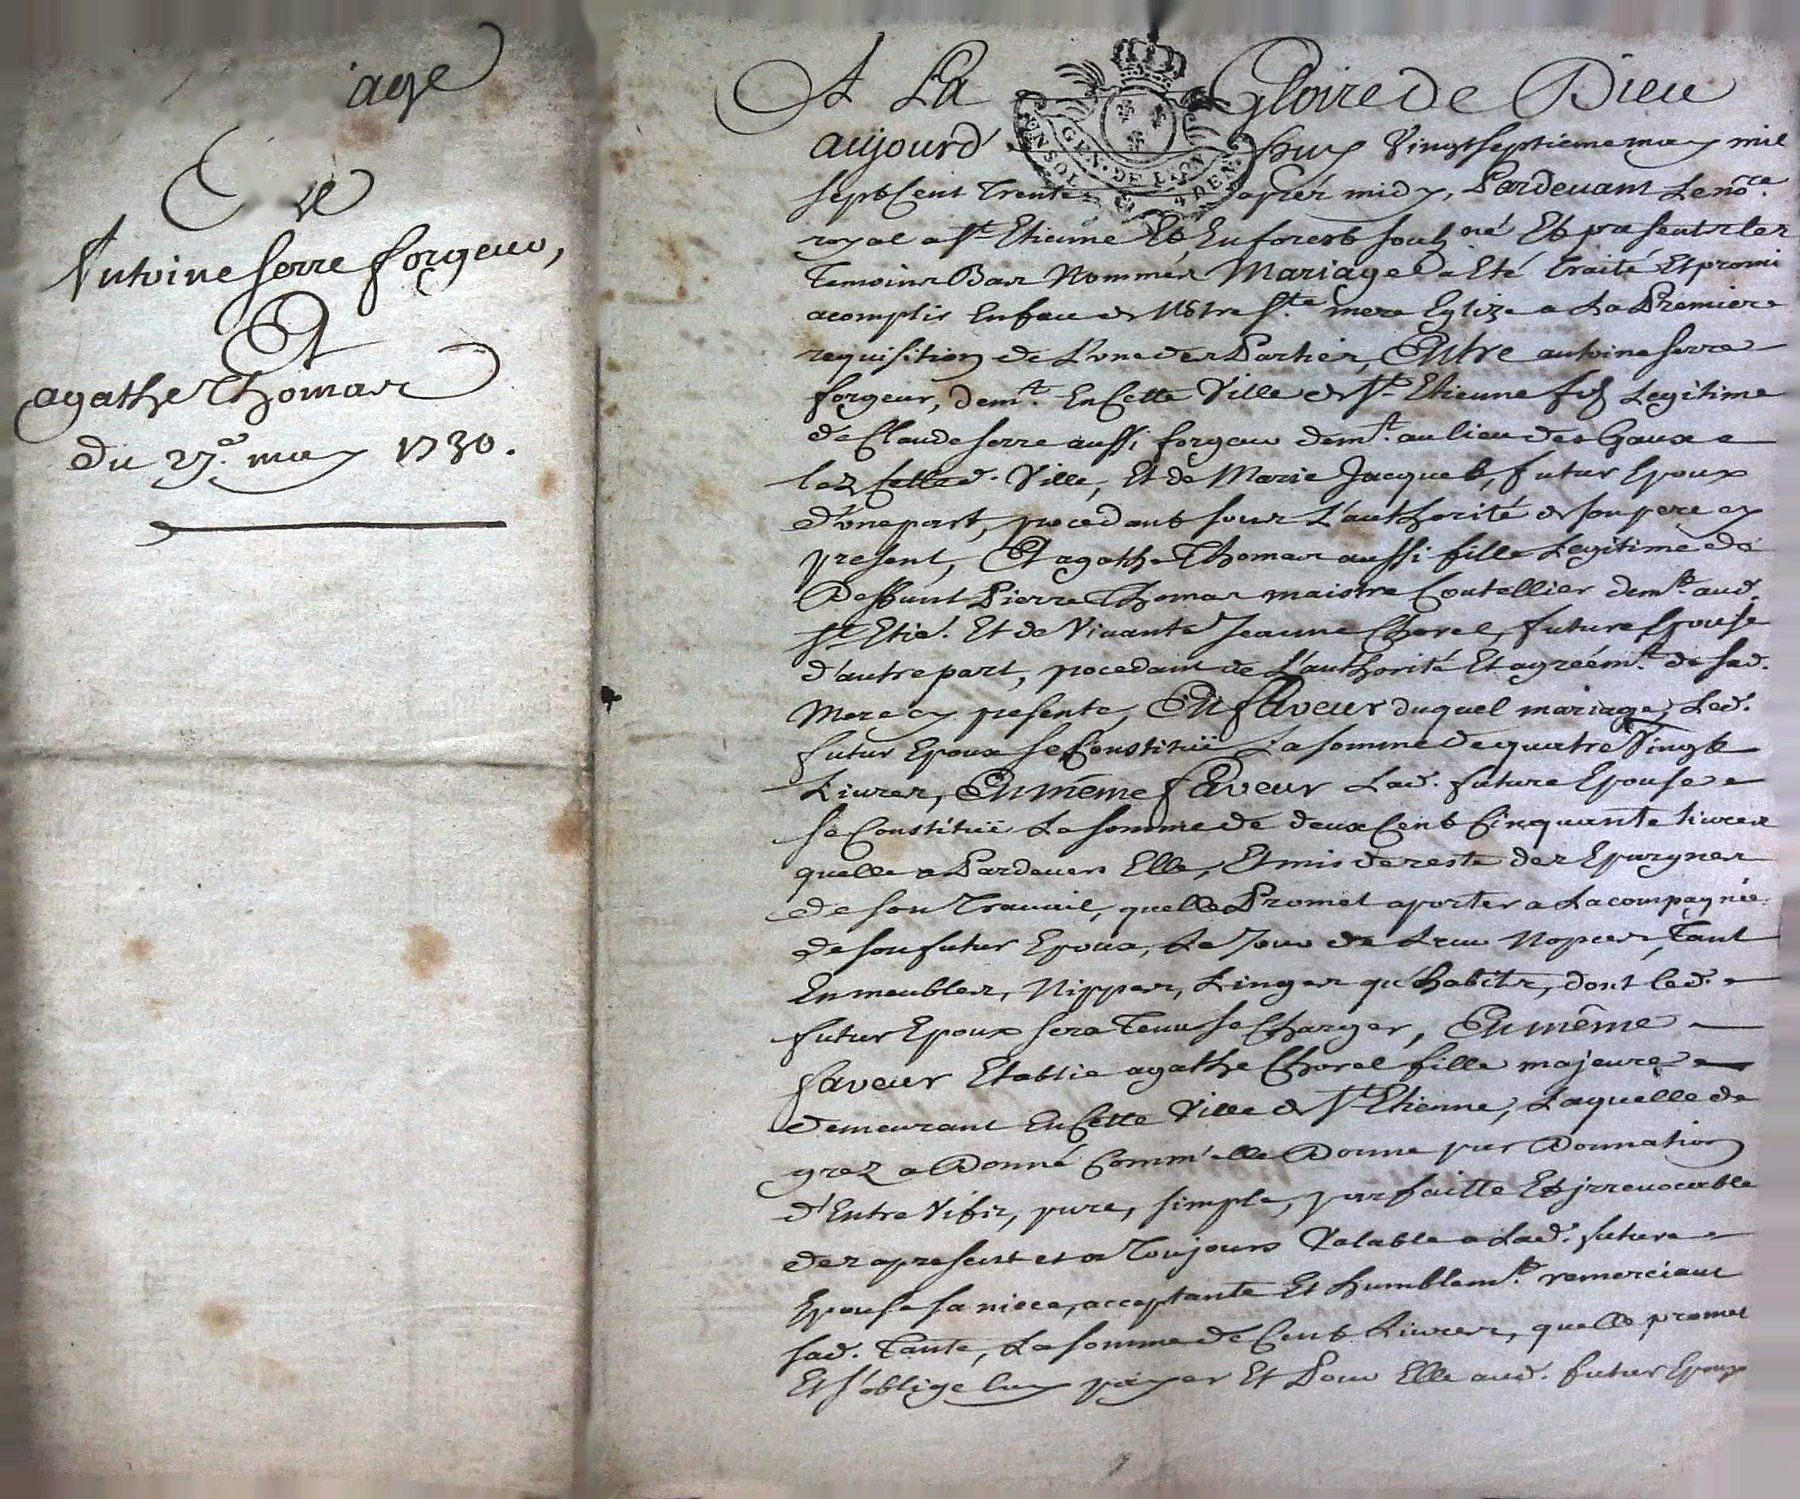 age
de
Antoine serre forgeur,
Et
agathe Thomas
du 27e. may 1730.
A La Gloire de Dieu
GEN. DE LION
aujourd'huy Vingtseptieme may mil
septCent Trente apres midy, Pardevant Le nore.
royal a St. Etienne Et En forest soubz né Et presents les
Temoins Bas Nommés Mariage a Eté Traité Et promi
acomplir En face de Notre Ste. mere Eglize a La Premiere
requisition de L'une des Parties, Entre antoine serre
forgeur, demt. En Cette Ville de St. Etienne fis Legitime
de Claude serre aussi forgeur demt. au lieu des Gaux
lez cetted. Ville, Et de Marie Jacques, futur Epoux
d'une part, procedant sous L'authorité de son pere cy
present, Et agathe Thomas aussi fille Legitime de
Deffunt Pierre Thomas maistre Coutellier demt. aud.
St. Etie. Et de Vivante Jeanne Chorel, future Epouse
d'autre part, procedant de L'authorité Et agréemt. de sad.
Mere cy presente, En faveur duquel mariage, Led.
futur Epoux se Constituë La somme de quatre Vingt
Livres, En même faveur Lad. future Epouse
se Constituë La somme de deux Cent Cinquante livres
quelle a Pardevers Elle, Et mis de reste des Epargnes
de son Travail, quelle Promet aporter a La compagnie
de son futur Epoux, Le Jour de Leur Nopces, Tant
En meubles, Nippes, Linges qu'habits, dont led.
futur Epoux sera Tenu se Charger, En même
faveur Etablie agathe Chorel fille majeure
demeurant En Cette Ville de St. Etienne, Laquelle de
grez a Donné Comm'elle Donne par Donnation
d'Entre Vifs, pure, simple, parfaitte Et jrrevocable
dez apresent et a Toujours Valable a Lad. future
Epouse sa niece, acceptante Et humblemt. remerciant
sad. Tante, La somme de Cent Livres, quelle promet
Et s'oblige luy payer Et Pour Elle aud. futur Epoux